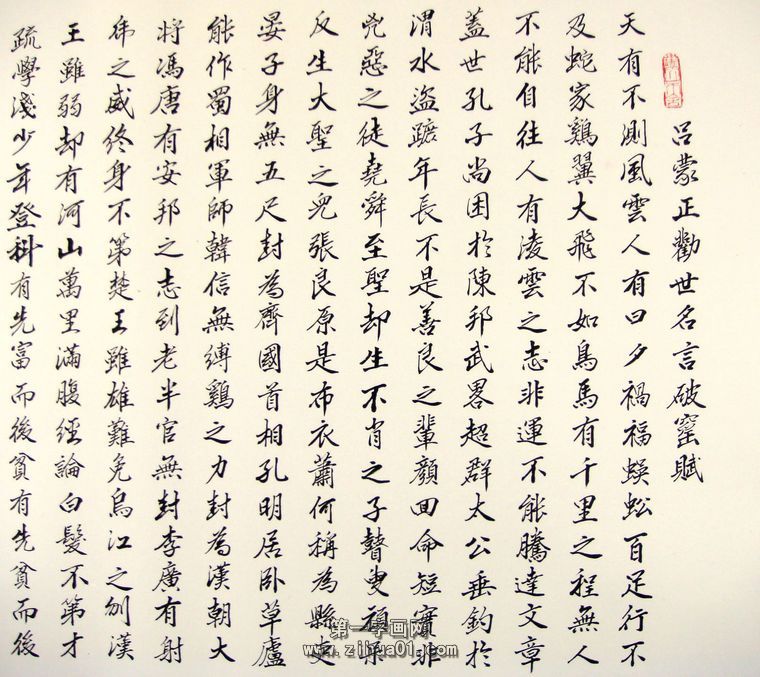 吕蒙正勸世名言破窰賦
天有不測風雲人有旦夕禍福蜈蚣百足行不
及蛇家鷄翼大飛不如鳥馬有千里之程無人
不能自往人有凌雲之志非運不能騰達文章
蓋世孔子尚困於陳邦武畧超群太公垂釣於
渭水盗蹠年長不是善良之輩顏回命短實非
兇惡之徒堯舜至聖却生不肖之子瞽叟頑呆
反生大聖之兒張良原是布衣蕭何稱為縣吏
晏子身無五尺封為齊國首相孔明居卧草廬
能作蜀相軍師韓信無縛鷄之力封為漢朝大
將馮唐有安邦之志到老半官無封李廣有射
虎之威終身不第楚王雖雄難免烏江之刎漢
王雖弱却有河山萬里滿腹經論白髮不第才
疏學淺少年登科有先富而後貧有先貧而後
第一字画网
www.zihua01.com